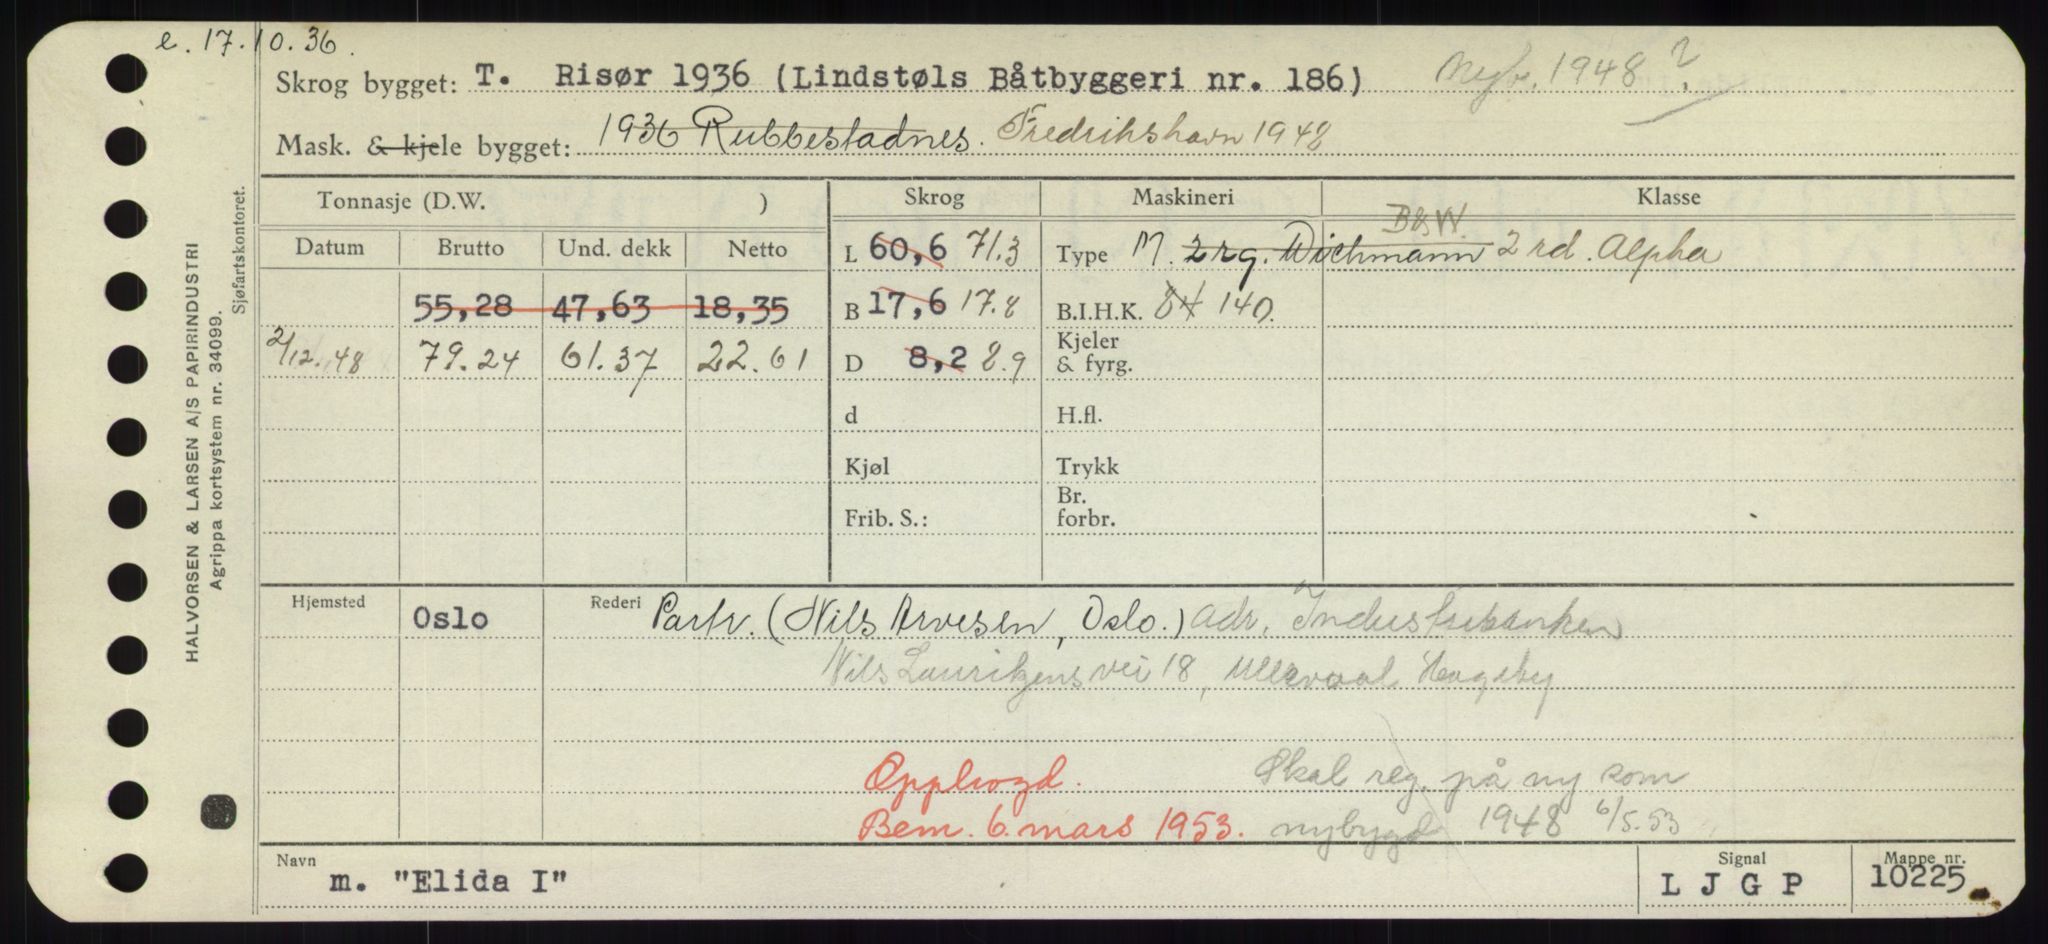 e. 17.10.36.
Skrog bygget: T. Risør 1936 (Lindstøls Båtbyggeri nr. 186) Nybg. 1948 ?
Mask. & kjele bygget: 1936 Rubbestadnes. Fredrikshavn 1948
Tonnasje (D.W. ) Skrog Maskineri Klasse
Datum Brutto Und. dekk Netto
L 60,6 71.3 Type M. 2 rg. Wichmann B&W. 2 rd. Alpha
55,28 47,63 18,35 B 17,6 17.8 B.I.H.K. 84 140.
2/12.48 79.24 61.37 22.61 D 8,2 8.9 Kjeler & fyrg.
d H.fl.
Kjøl Trykk
Frib. S.: Br. forbr.
Hjemsted Oslo Rederi Partr. (Nils Arvesen, Oslo.) Adr. Industribanken
Nils Lauritzens vei 18, Ullevaal Hageby
Opphogd. Skal reg. på ny som
Bem. 6. mars 1953. nybygd 1948 6/5.53
Navn m. "Elida I" Signal L J G P Mappe nr. 10225
HALVORSEN & LARSEN A/S PAPIRINDUSTRI
Agrippa kortsystem nr. 34099.
Sjøfartskontoret.